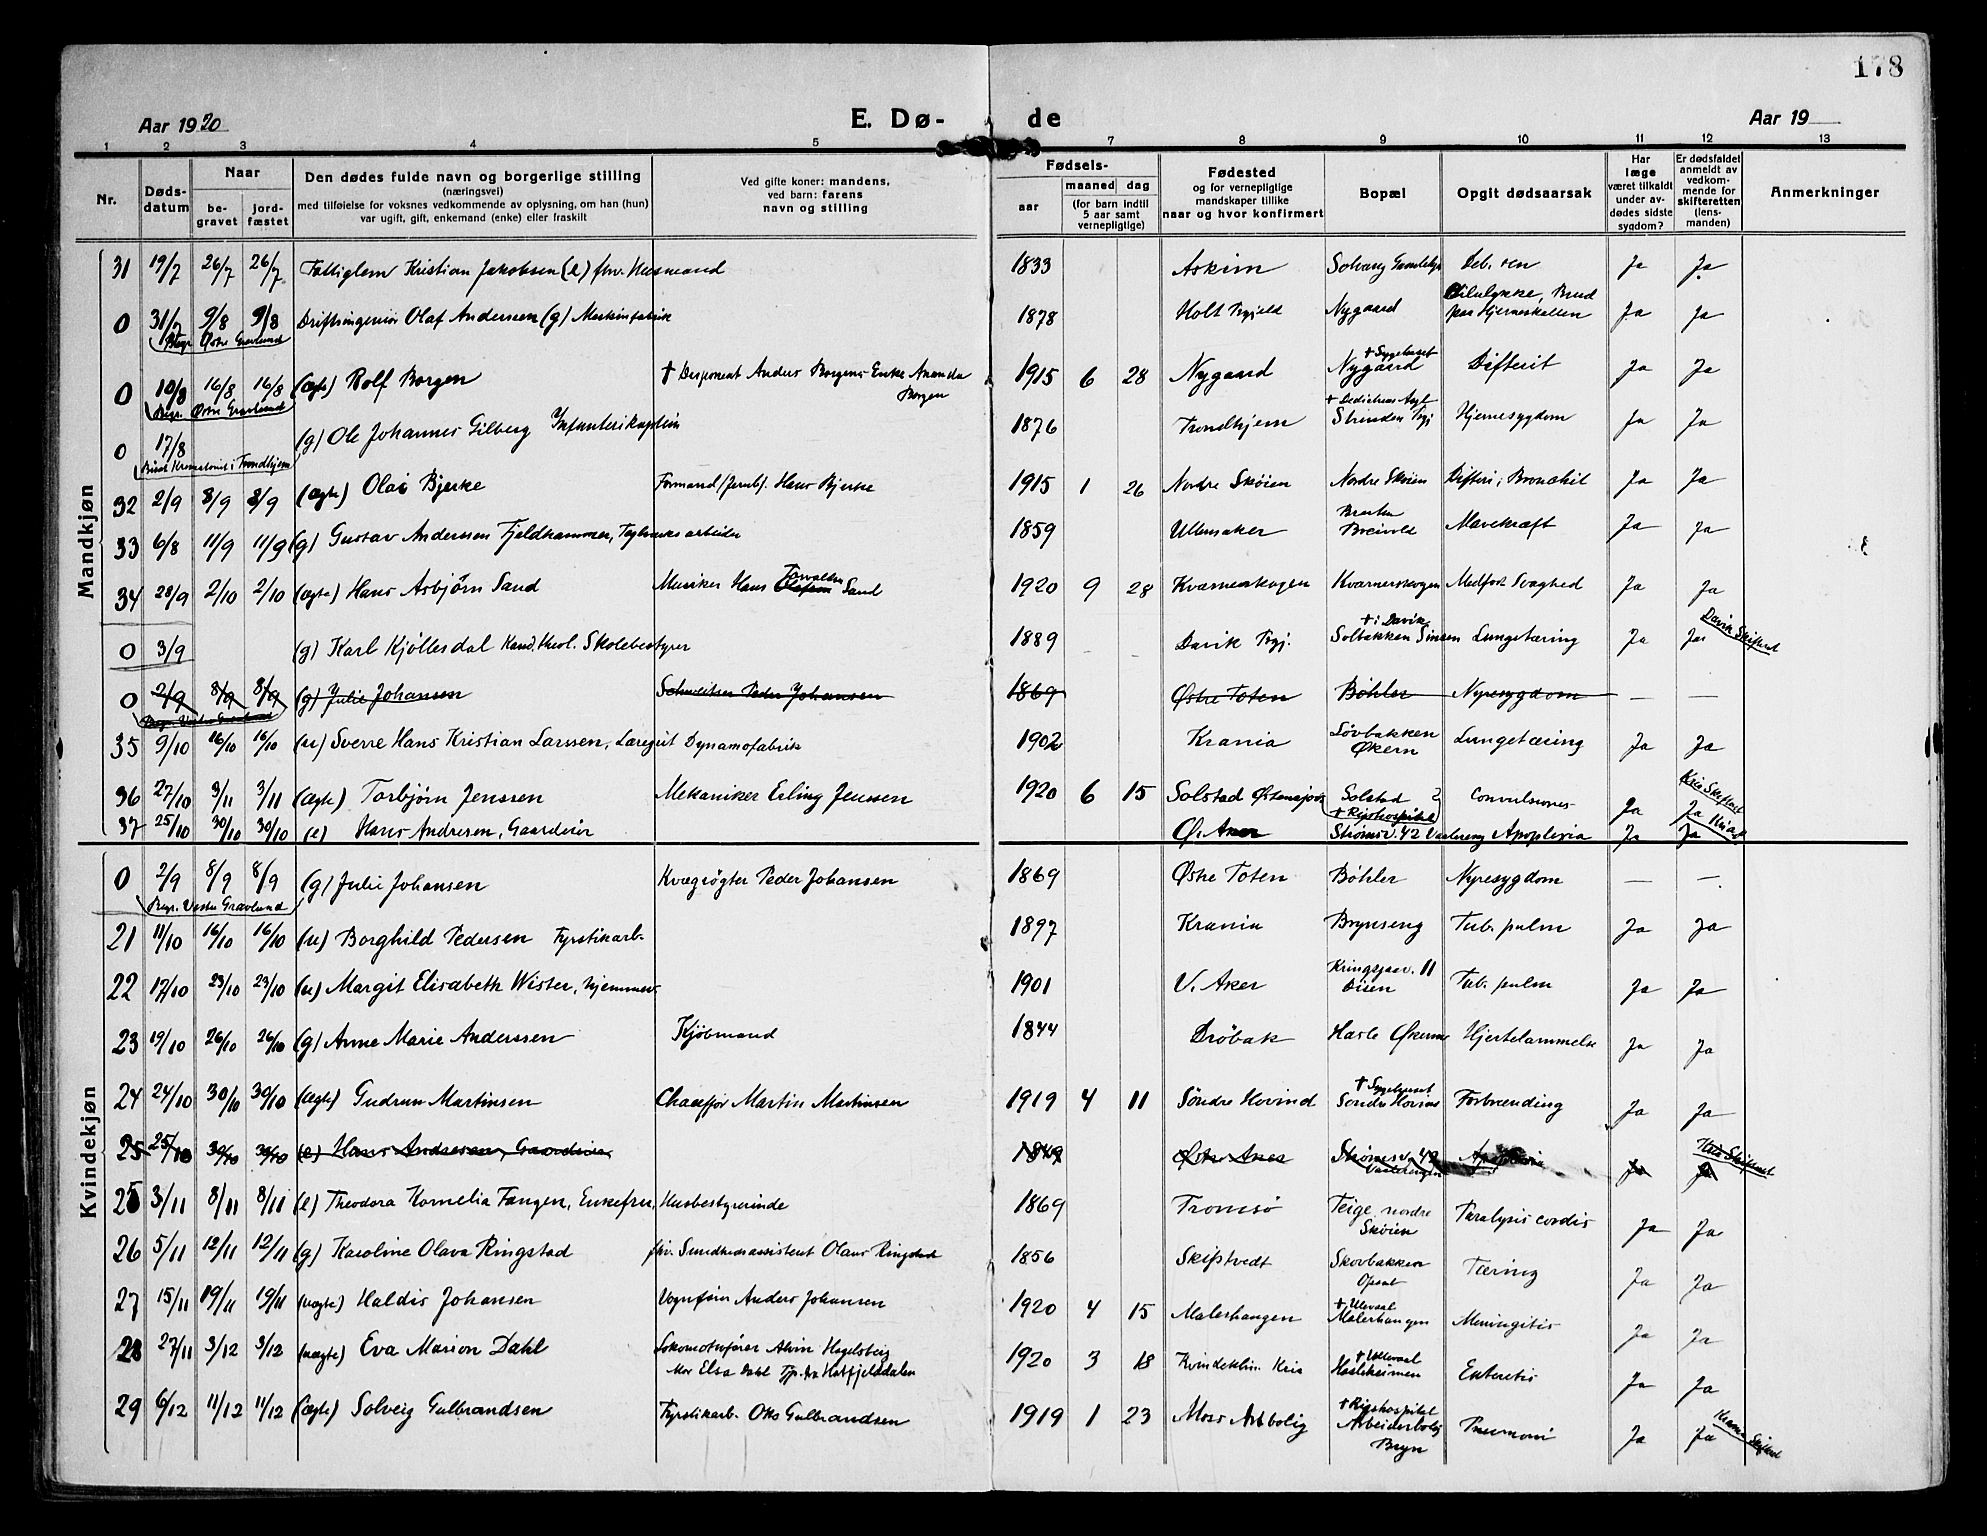 178
Aar 1920 E. Dø- de Aar 19
1 2 3 4 5 7 8 9 10 11 12 13
Nr. Døds-datum Naar be-gravet jord-fæstet Den dødes fulde navn og borgerlige stilling (næringsvei) med tilføielse for voksnes vedkommende av oplysning, om han (hun) var ugift, gift, enkemand (enke) eller fraskilt Ved gifte koner: mandens, ved barn: farens navn og stilling Fødsels- aar maaned dag (for barn indtil 5 aar samt vernepligtige) Fødested og for vernepligtige mandskaper tillike naar og hvor konfirmert Bopæl Opgit dødsaarsak Har læge været tilkaldt under av-dødes sidste sygdom? Er dødsfaldet anmeldt av vedkom-mende for skifteretten (lens-manden) Anmerkninger
Mandkjøn
31 19/7 26/7 26/7 Fattiglem Kristian Jakobsen (e) fhv. Husmand 1833 Askim Solvang Ja Ja
0 31/7 9/8 9/8 Driftsingeniør Olaf Anderssen (g) 1878 Holt Prgjeld Nygaard Bilulykke, Brud paa Hjerneskallen Ja Ja
Begr. Østre Gravlund
0 10/8 16/8 16/8 (ægte) Rolf Borgen † Disponent Anders Borgens Enke Amanda Borgen 1915 6 28 Nygaard † Sygehuset Nygaard Difterit Ja Ja
Begr. Østre Gravlund
0 17/8 (g) Ole Johannes Gilberg Infanterikaptein 1876 Trondhjem Strinden Prgj Hjernesygdom Ja Ja
Krematoriet i Trondhjem
32 2/9 8/9 8/9 (ægte) Olai Bjerke Formand (Jernb). Hans Bjerke 1915 1 26 Nordre Skøien Nordre Skøien Difteri, Bronchit Ja Ja
33 6/8 11/9 11/9 (g) Gustav Anderssen Fjeldhammer, Teglverksarbeider 1859 Ullensaker Breivold Mavekræft Ja Ja
34 28/9 2/10 2/10 (ægte) Hans Asbjørn Sand Musiker Hans Sand 1920 9 28 Kværnerskogen Kværnerskogen Medfødt Svaghed Ja Ja
0 3/9 (g) Karl Kjøllesdal Kand. theol. Skolebestyrer 1889 Davik Prgj. † i Davik Solbakken Sinsen Lungetæring Ja Ja Davik Skifteret
0 2/9 8/9 8/9 (g) Julie Johansen Schweitser Peder Johansen 1869 Østre Toten Bøhler Nyresygdom — —
Begr. Vestre Gravlund
35 9/10 16/10 16/10 (u) Sverre Hans Kristian Larssen, Læregut Dynamofabrik 1902 Krania Løvbakken Økern Lungetæring Ja Ja
36 27/10 3/11 3/11 (ægte) Torbjørn Jenssen Mekaniker Erling Jenssen 1920 6 15 Solstad Østensjøv. Solstad † Rigshospitalet Convulsiones Ja Ja Kria Skifteret
37 25/10 30/10 30/10 (e) Hans Andresen, Gaardeier Ø. Aker Strømsv. 42 Vaalereng Apoplexia Ja Ja Kria
Kvindekjøn
0 2/9 8/9 8/9 (g) Julie Johansen Kvægrøgter Peder Johansen 1869 Østre Toten Bøhler Nyresygdom — —
Begr. Vestre Gravlund
21 11/10 16/10 16/10 (u) Borghild Pedersen Fyrstikarb. 1897 Krania Brynseng Tub. pulm Ja Ja
22 17/10 23/10 23/10 (u) Margit Elisabeth Wister, hjemmev. 1901 V. Aker Kringsjaav. 11 Disen Tub. pulm Ja Ja
23 19/10 26/10 26/10 (g) Anne Marie Anderssen Kjøbmand 1844 Drøbak Hasle Økernv Hjertelammelse Ja Ja
24 24/10 30/10 30/10 (ægte) Gudrun Martinsen Chauffør Martin Martinsen 1919 4 11 Søndre Hovind † Sygehuset Søndre Hovind Forbrænding Ja Ja
25 25/10 30/10 30/10 (e) Hans Andresen, Gaardeier 1849 Østre Aker Strømsv. 42 Vaalerengen Apoplexia Ja Ja Kria Skifteret
25 3/11 8/11 8/11 (e) Theodora Kornelia Fangen, Enkefrue, Husbestyrerinde 1869 Tromsø Teige nordre Skøien Paralysis cordis Ja Ja
26 5/11 12/11 12/11 (g) Karoline Olava Ringstad fhv. Sundhedsassistent Olaus Ringstad 1856 Skiptvedt Skovbakken Opsal Tæring Ja Ja
27 15/11 19/11 19/11 (uægte) Haldis Johansen Vognfører Anders Johansen 1920 4 15 Malerhaugen † Ullevaal Malerhaugen Meningitis Ja Ja
28 27/11 3/12 3/12 (uægte) Eva Marion Dahl Lokomotivfører Alvin Hagelsteig Mor Elsa Dahl Tjp. fra Hatfjelddalen 1920 3 18 Kvindeklin. Kria † Ullevaal Hasleheimen Enteritis Ja Ja
29 6/12 11/12 11/12 (ægte) Solveig Gulbrandsen Fyrstikarb. Oks Gulbrandsen 1919 1 23 Moss Arbbolig † Rigshospitalet Arbeiderbolig Bryn Pneumoni Ja Ja Krania Skifteret